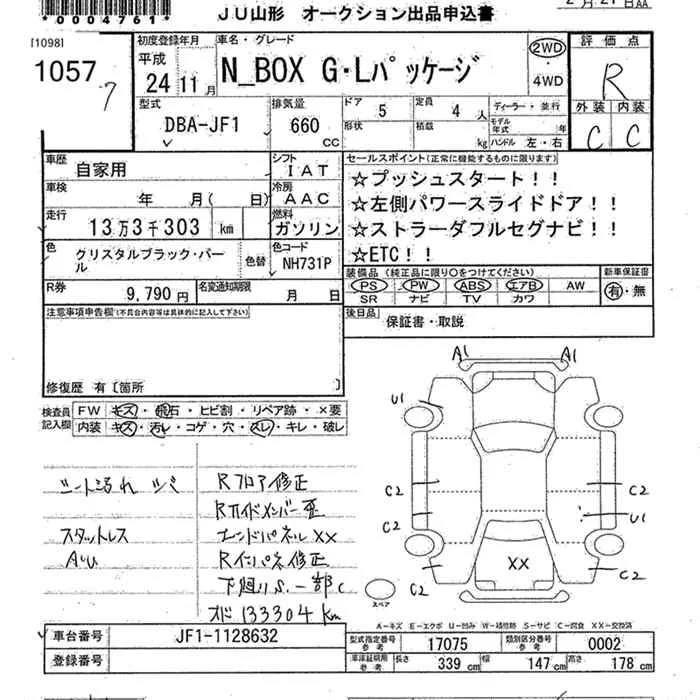 *0004761*
JU山形 オークション出品申込書
2月21日AA
[1098]
1057
7
初度登録年月
平成
24年11月
車名・グレード
N_BOX G・Lパッケージ
2WD
・
4WD
評価点
R
外装 内装
C C
型式
DBA-JF1
排気量
660
CC
ドア
5
定員
4人
ディーラー・並行
形状
積載
kg
モデル年式 年
ハンドル 左・右
車歴
自家用
シフト
IAT
車検
年 月( 日)
冷房
AAC
走行
13万3千303 km
燃料
ガソリン
色
クリスタルブラック・パール
色替
色コード
NH731P
R券
9,790円
名変通知期限
月 日
セールスポイント(正常に機能するものに限ります)
☆プッシュスタート!!
☆左側パワースライドドア!!
☆ストラーダフルセグナビ!!
☆ETC!!
装備品(純正品に限り○をつけてください)
PS PW ABS エアB AW
SR ナビ TV カワ
新車保証書
有・無
後日品
保証書・取説
注意事項申告欄(不具合内容等は具体的に記入して下さい)
修復歴 有〔箇所 〕
検査員記入欄
FW キズ・飛石・ヒビ割・リペア跡・×要
内装 キズ・汚レ・コゲ・穴・スレ・キレ・破レ
シート汚れ シミ
スタットレス
A\U
Rフロア修正
Rサイドメンバー歪
エンドパネルXX
Rインパネ修正
下廻りS.一部C
オド133304km
A1 A1
U1
C2 C2
C2 U1
C2 C2
XX
スペア
A-キズ E-エクボ U-凹み W-補修跡 S-サビ C-腐食 XX-交換済
車台番号
JF1-1128632
登録番号
型式指定番号 参考
17075
類別区分番号 参考
0002
車庫証明用 参考
長さ 339cm 幅 147cm 高さ 178cm